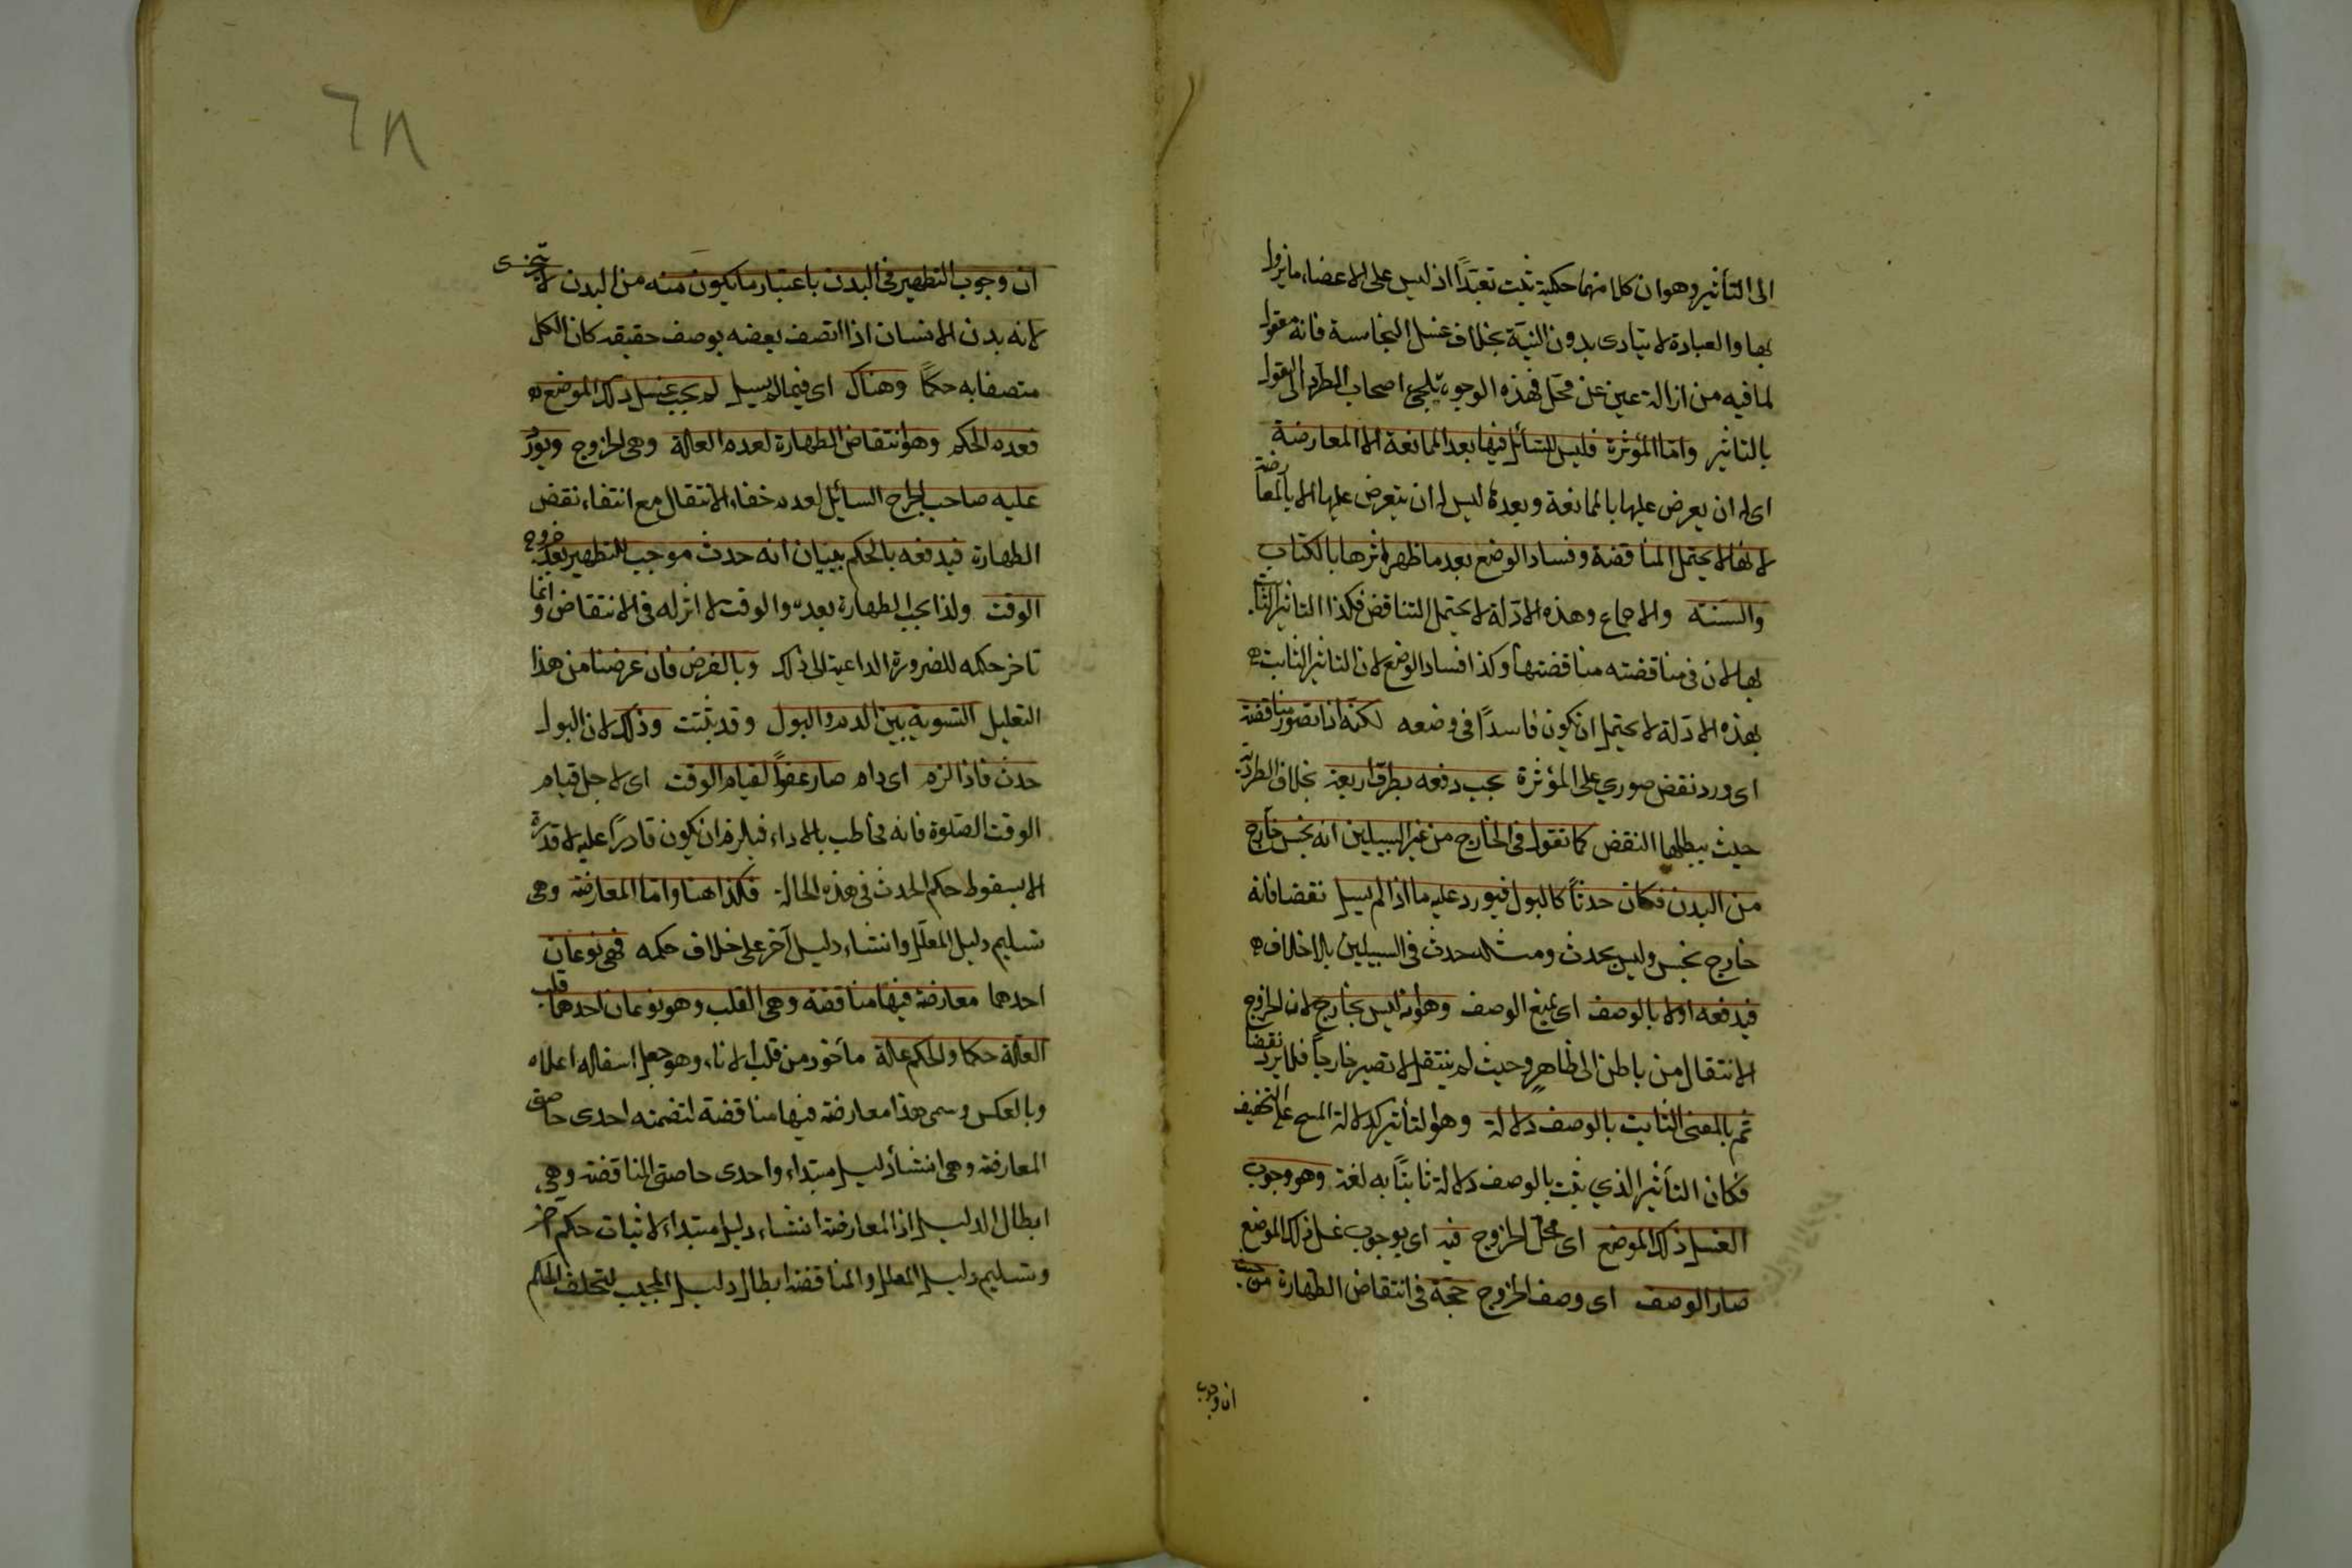 الى التأثير وهو ان كلا منهما حكمية يثبت تعبدًا اذ ليس على الاعضاء ما يزول
بها والعبادة لا يتادى بدون النية بخلاف غسل النجاسة فانه معقول
لما فيه من ازالة عين عن محل فهذه الوجوه تلجئ اصحاب الطرد الى القول
بالتاثير واما المؤثرة فليس للسائل فيها بعد الممانعة الا المعارضة
اى له ان يعرض عليها بالممانعة وبعده ليس له ان يتعرض عليها الا بالمعارضة
لانها لا يحتمل المناقضة وفساد الوضع بعد ما ظهر اثرها بالكتاب
والسنة والاجماع وهذه الادلة لا يحتمل التناقض فكذا التاثير الثابت
بها لان فى مناقضته مناقضتها وكذا فساد الوضع لان التاثير الثابت
بهذه الادلة لا يحتمل ان يكون فاسدًا فى وضعه لكنه اذا تصور مناقضة
اى ورد نقض صوري على المؤثرة يجب دفعه بطرق اربعة بخلاف الطردية
حيث يبطلها النقض كما نقول فى الخارج من غير السبيلين انه نجس خارج
من البدن فكان حدثًا كالبول فيورد عليه ما اذا لم يسيل نقضا فانه
خارج نجس وليس بحدث ومثله حدث فى السبيلين بلا خلاف
فيدفعه اولا بالوصف اى بمنع الوصف وهو انه ليس بخارج لان الخروج
الانتقال من باطن الى ظاهر وحيث لم ينتقل لا تصير خارجًا فلا يرد نقضا
ثم بالمعنى الثابت بالوصف دلالة وهو التأثير كدلالة المسح على التخفيف
فكان التأثير الذي يثبت بالوصف دلالة ثابتًا به لغة وهو وجوب
الغسل ذلك الموضع اى محل الخروج فيه اى بوجوب غسل ذلك الموضع
صار الوصف اى وصف الخروج حجة فى انتقاض الطهارة من حيث
ان وجوب
٦٨
ان وجوب التطهير فى البدن باعتبار ما يكون منه من البدن لا يتجزى
لانه بدن الانسان اذا اتصف بعضه بوصف حقيقة كان الكل
متصفا به حكمًا وهناك اى فيما لم يسيل لم يجب غسل ذلك الموضع
فعدم الحكم وهو انتقاض الطهارة لعدم العلة وهى الخروج ويورد
عليه صاحب الجرح السائل لعدم خفاء الانتقال مع انتفاء نقض
الطهارة فيدفعه بالحكم ببيان انه حدث موجب للتطهير بعد خروج
الوقت ولذا يجب الطهارة بعده والوقت لا اثر له فى الانتقاض وانما
تاخر حكمه للضرورة الداعية الى ذلك وبالغرض فان غرضنا من هذا
التعليل التسوية بين الدم والبول وقد ثبتت وذلك لان البول
حدث فاذا لزم اى دام صار عفوًا لقيام الوقت اى لاجل قيام
الوقت الصلوة فانه مخاطب بالاداء فيلزم ان يكون قادرًا عليه لا قدرة
الا بسقوط حكم الحدث فى هذه الحالة فكذا هنا واما المعارضة وهى
تسليم دليل المعلل وانشاء دليل آخر على خلاف حكمه فهى نوعان
احدهما معارضة فيها مناقضة وهى القلب وهو نوعان احدهما قلب
العلة حكما والحكم علة مأخوذ من قلب الاناء وهو جعل اسفله اعلاه
وبالعكس وسمى هذا معارضة فيها مناقضة لتضمنه احدى خاصتى
المعارضة وهى انشأ دليل مبتداء واحدى خاصتى المناقضة وهى
ابطال الدليل اذ المعارضة انشاء دليل مبتداء لاثبات حكم آخر
وتسليم دليل المعلل والمناقضة ابطال دليل المجيب لتخلف الحكم